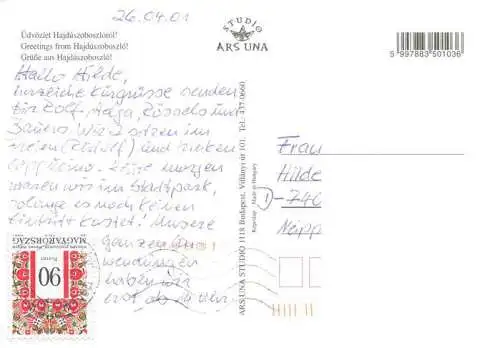 26.04.01
Üdvözlet Hajdúszoboszlóról!
Greetings from Hajdúszoboszló!
Grüße aus Hajdúszoboszló!
Hallo Hilde,
herzliche Kurgrüsse senden
Dir Rolf, Helga, Rössels und
Bauers. Wir sitzen im
Freien und trinken
Cappucino. Heute morgen
waren wir im Stadtpark,
solange es noch keinen
Eintritt kostet! Unsere
ganzen
wendungen
haben wir
erst ab 11 Uhr.
STUDIO
ARS UNA
5 997883 501036
ARS UNA STUDIO 1118 Budapest, Villányi út 101. Tel. 457-0660
Made in Hungary
Frau
Hilde
D-740
MAGYARORSZÁG
90